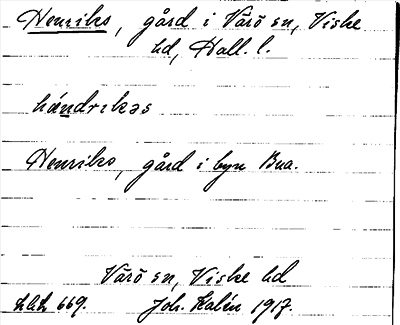 Henriks, gård i Värö sn, Viske
hd, Hall. l.
hándrikəs
Henriks, gård i byn Bua.
Värö sn, Viske hd
669. Joh. Kalén 1917.